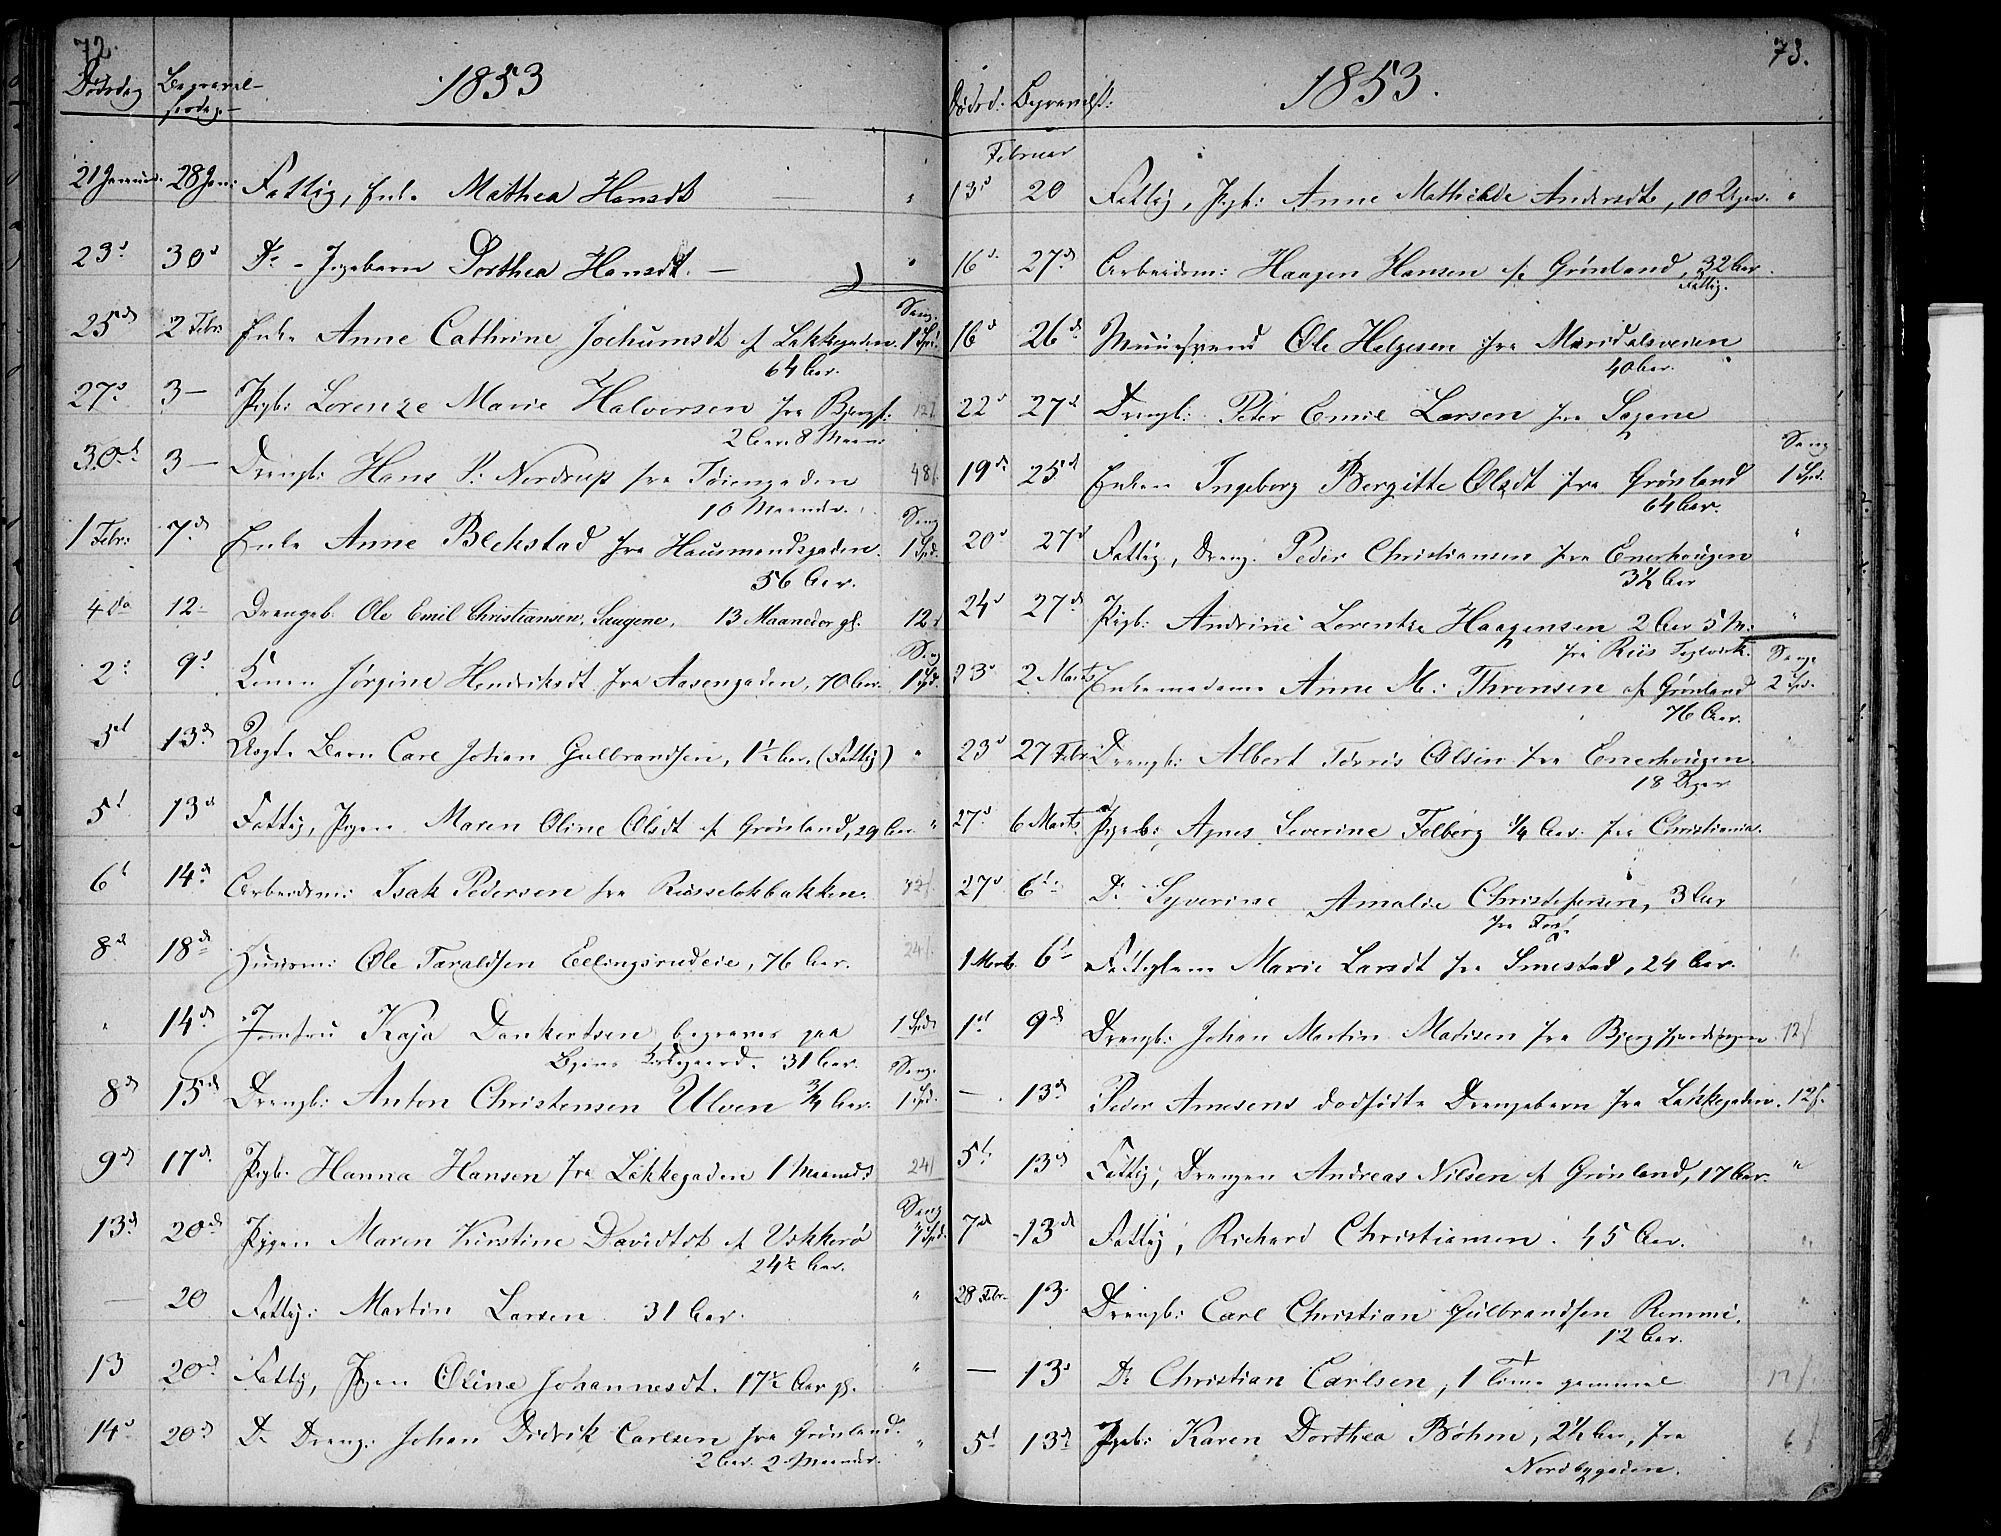 72.
Dødsdag Begravelsesdag
1853
21 Januar. 28 Jan: Fattig, Enke Mathea Hansdt — "
23d 30d Do - Pigebarn Dorthea Hansdt. — "
25de 2 Febr Enke Anne Cathrine Jochumsdt af Lakkegaden. Sang. 1 Spd.
64 Aar.
27d 3 — Pigb: Lorenze Marie Halvorsen fra Bjergf: 12
2 Aar 8 Maan:
30te 3 — Drengb: Hans P. Nordrup fra Töiengaden 48
10 Maander.
1 Febr: 7de Enke Anne Blekstad fra Hausmandsgaden. Sang 1 Spd.
56 Aar.
4do 12 - Drengeb. Ole Emil Christiansen, Saugene, 13 Maaneder gl. 12
2: 9d Konen Jørgine Hendriksdt fra Aasengaden, 70 Aar. Sang 1 Spd.
5d 13de Uægte Barn Carl Johan Gulbrandsen, 1½ Aar. (Fattig) "
5t 13d Fattig, Pigen Maren Oline Olsdt af Grønland, 29 Aar "
6t 14de Arbeidsm: Isak Pedersen fra Ruseløkbakken.
8d 18de Huusm: Ole Taraldsen Ellingsrudeie, 76 Aar. 24
" 14de Jomfru Kaja Dankertsen, begraves paa 1 Spd
Byens Kirkegaard. 31 Aar.
8de 15de Drengb: Anton Christensen Ulven ¾ Aar. Sang. 1 Spd.
9de 17de Pigb. Hanna Hansen fra Lakkegaden 1 Maaned 24
13de 20de Pigen Maren Kirstine Davidtdt af Ukkerø Sang Spd
24½ Aar.
— 20 Fattig: Martin Larsen 31 Aar. "
13 20de Fattig, Pigen Oline Johannesdt. 17½ Aar gl. "
14d 20d Do Dreng: Johan Didrik Carlsen fra Grønland. "
2 Aar. 2 Maander.
73.
Dødsd: Begravelsd:
1853.
Februar
13d 20 Fattig, Pigb: Anne Mathilde Andersdt, 10 Uger. "
16d 27de Arbeidsm: Haagen Hansen af Grønland, 32 Aar.
Fattig.
16d 26de Muursvend Ole Helgesen fra Maridalsveien "
40 Aar.
22d 27d Drengb: Peter Emil Larsen fra Sagene
19de 25d Enken Ingeborg Bergitte Olsdt fra Grønland Sang 1 Spd.
64 Aar.
20d 27d Fattig, Dreng. Peder Christiansen fra Enerhougen "
3½ Aar
24d 27de Pigb: Andrine Lorentze Haagensen 2 Aar 5 M: "
fra Riis Teglverk.
23d 2 Marts Enkemadame Anne M: Thronsen af Grønland Sang 2 Spd.
76 Aar.
23d 27 Febr Drengb: Albert Tørris Olsen fra Enerhougen "
18 Uger
27d 6 Marts Pigeb: Agnes Severine Folberg ¼ Aar. fra Christiania.
27d 6t: Do Syverine Amalie Christofersen, 3 Aar
fra
1 Marts 6t Fattiglem Marie Larsdt fra Smestad, 24 Aar. "
1st 9de Drengb: Johan Martin Madisen fra Bjergfjerdingen 12
— 13de Peder Arnesens dødfødte Drengebarn fra Lakkegaden. 12
5t 13de Fattig, Drengen Andreas Nilsen af Grønland, 17 Aar. "
7de 13de Fattig, Richard Christiansen. 45 Aar. "
28 Febr. 13 Drengb: Carl Christian Gulbrandsen Rommi. "
12 Aar.
— 13d Do Christian Carlsen, 1 Time gammel 12
5t 13de Pigeb: Karen Dorthea Bøhm, 2½ Aar, fra 6
Nordbygaden.